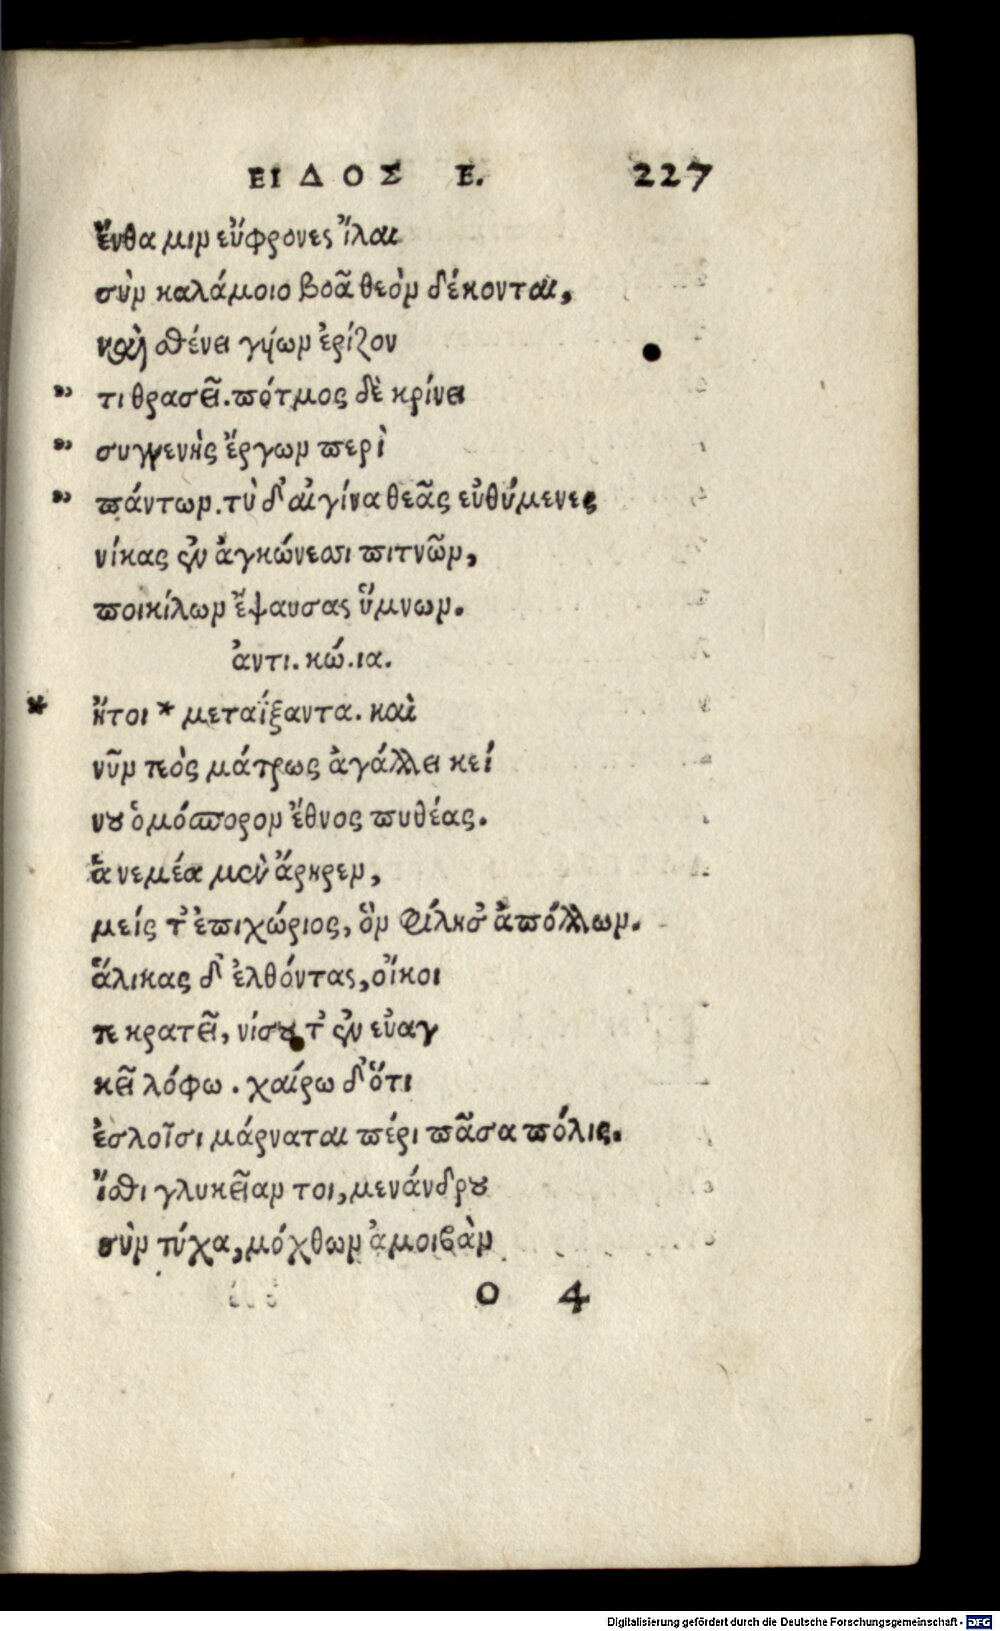 ΕΙΔΟΣ Ε. 227
ἔνθα μιν εὔφρονες ἴλαι
σὺν καλάμοιο βοᾶ θεὸν δέκονται,
καὶ σθένει γύων ἐρίζον
τι θρασεῖ. πότμος δὲ κρίνει
συγγενὴς ἔργων περὶ
πάντων. τὺ δ' αἰγίνα θεᾶς εὐθύμενες
νίκας ἐν ἀγκώνεσσι πιτνῶν,
ποικίλων ἔψαυσας ὕμνων.
ἀντι. κώ. ια.
* ἤτοι * μεταΐξαντα. καὶ
νῦν τεὸς μάτρως ἀγάλλει κεί
νου ὁμόσπορον ἔθνος πυθέας.
ἁ νεμέα μὲν ἄρηρεν,
μείς τ' ἐπιχώριος, ὃν φίλησ' ἀπόλλων.
ἅλικας δ' ἐλθόντας, οἴκοι
τε κρατεῖ, νίσου τ' ἐν εὐαγ
κεῖ λόφω. χαίρω δ' ὅτι
ἐσλοῖσι μάρναται πέρι πᾶσα πόλις.
ἴσθι γλυκεῖαν τοι, μενάνδρου
σὺν τύχα, μόχθων ἀμοιβὰν
O 4
Digitalisierung gefördert durch die Deutsche Forschungsgemeinschaft - DFG